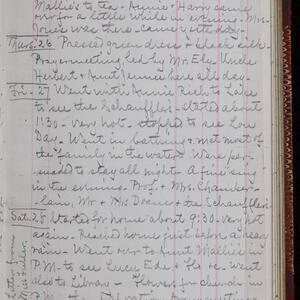 Mallie's to tea. Annie & Harry came
over for a little while in evening. Mrs.
Jones was there - came yesterday.
Thurs. 26 Pressed green dress & black silk.
Prayermeeting led by Mr. Ely. Uncle
Herbert & Aunt Jennie here all day.
Fri. 27 Went with Annie Rich to
to see the Schaufflers. Started about
11:30 - very hot - stopped to see
Day. Went in bathing & met most of
the family in the water. Were per-
suaded to stay all night. A fine sing
in the evening. Prof. & Mrs. Chamber-
lain, Mr & Mrs & the Schaufflers.
Sat. 28 Started for home about 9:30. Very hot
again. Reached home just before a heavy
rain. Went over to Aunt Mallie's in
P.M. to see Lucy. went
also to Library - Flowers for church in
P.M.
Letter from
Miss Fuller.